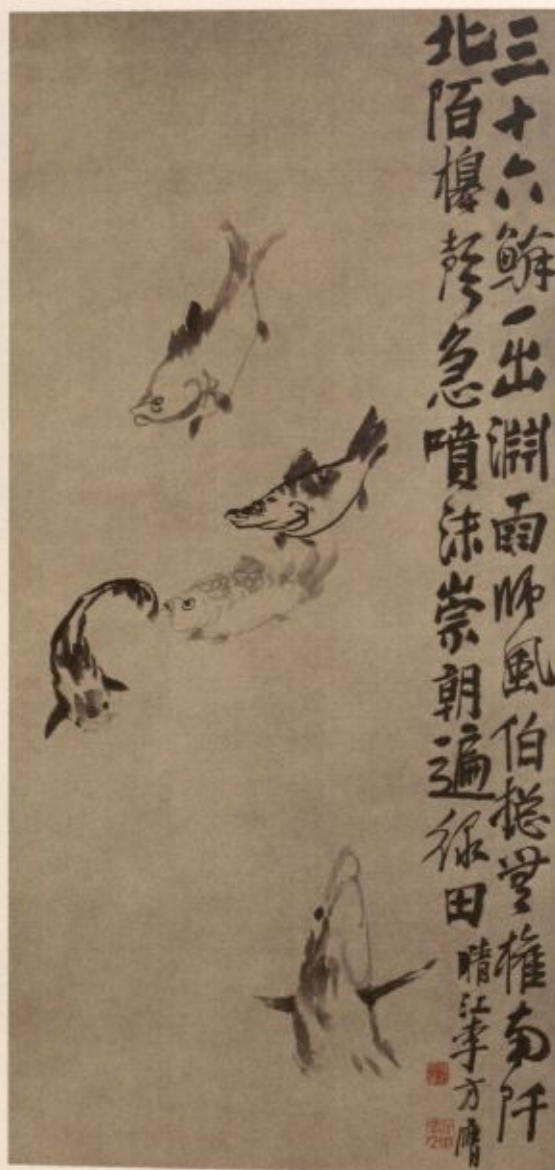 三十六鱗一出淵雨師風伯總無權南阡
北陌槹聲急噴沫崇朝遍綠田
晴江李方膺